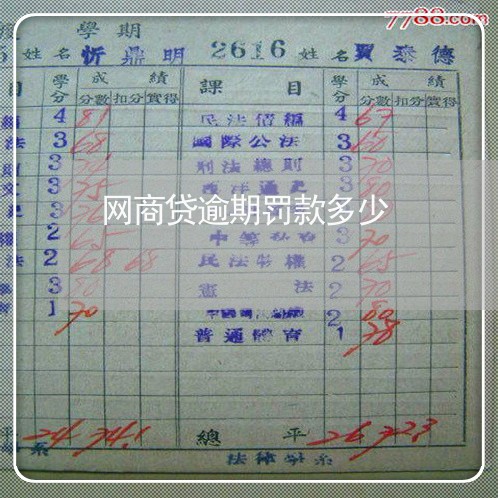 7788.com
學期
姓名 忻鼎明 2616 姓名 賈泰德
目 學分 成績 課目 學分 成績
分數 扣分 實得 分數 扣分 實得
4 81 民法債編 4 67
法 3 68 國際公法 3 60
3 刑法總則 3 70
3 75 西洋通史 3 80
網商贷逾期罚款多少
2 65 3 70
法 2 68 68 民法物權 2 65
3 80 憲法 2 70
1 70 2 80
普通體育 1 78
平 24 74.1 總平 26 72.3
系 法律學系